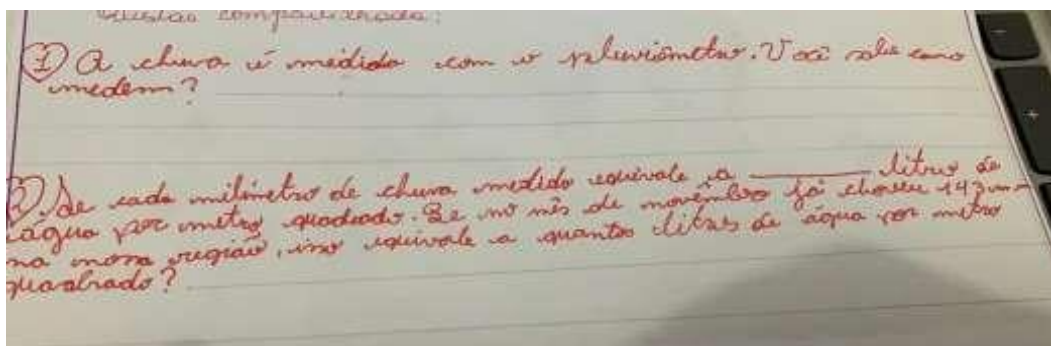 Questão compartilhada:
① A chuva é medida com o pluviômetro. Você sabe como
medem?
② Se cada milímetro de chuva medido equivale a ______ litros de
água por metro quadrado. Se no mês de novembro já choveu 143 mm
na nossa região, isso equivale a quantos litros de água por metro
quadrado?